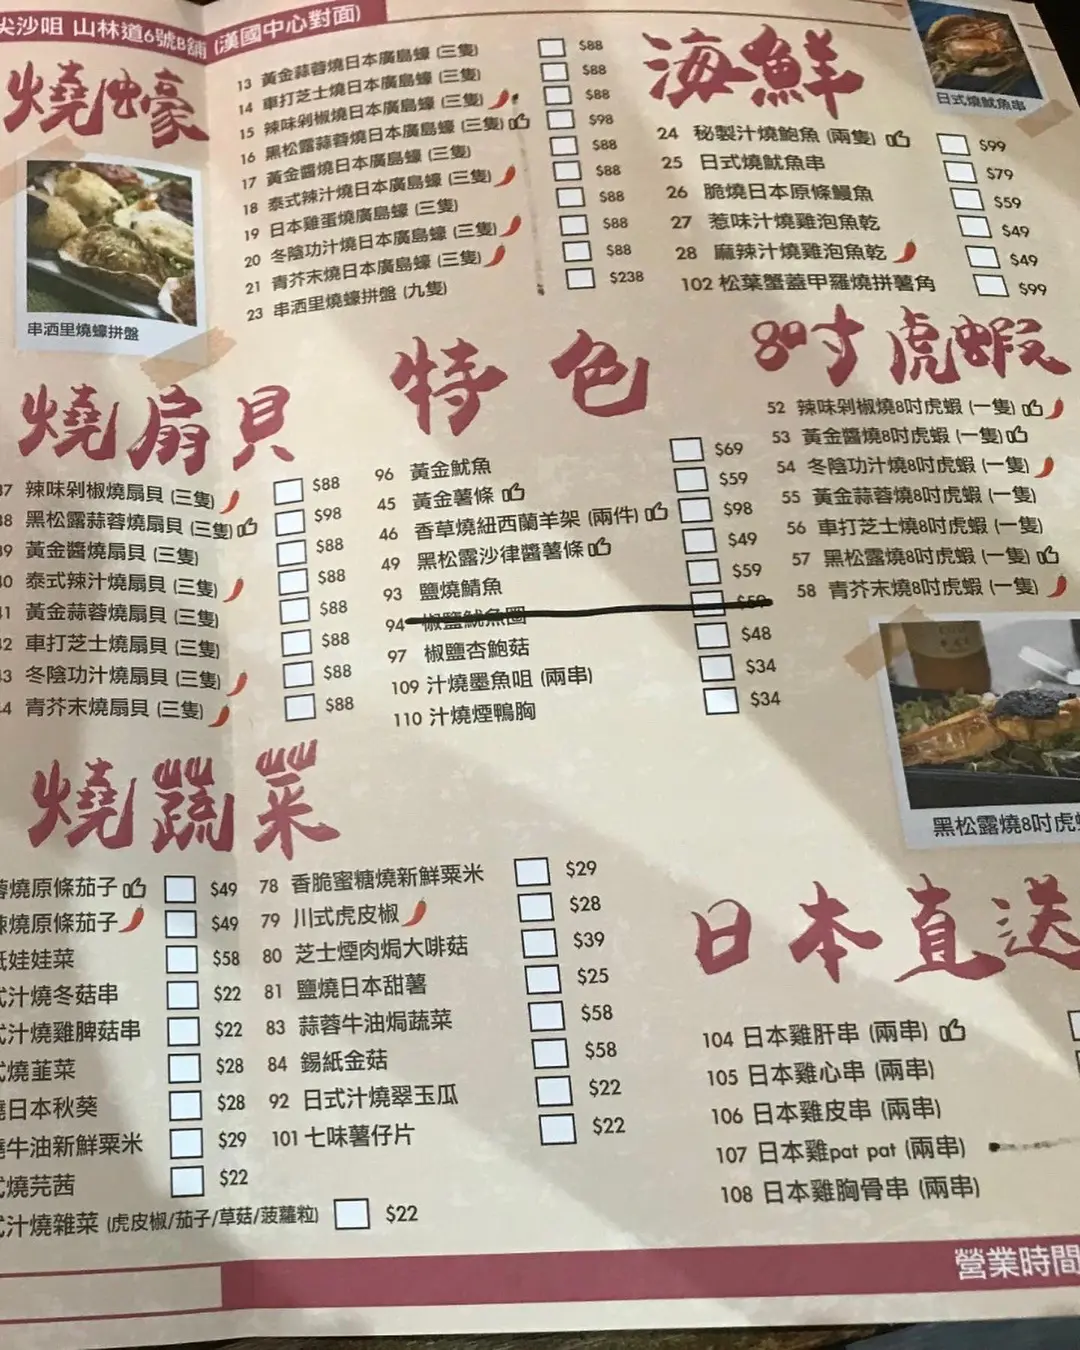 尖沙咀 山林道6號B舖 (漢國中心對面)
燒蠔
13 黃金蒜蓉燒日本廣島蠔 (三隻) $88
14 車打芝士燒日本廣島蠔 (三隻) $88
15 辣味剁椒燒日本廣島蠔 (三隻) $88
16 黑松露蒜蓉燒日本廣島蠔 (三隻) $98
17 黃金醬燒日本廣島蠔 (三隻) $88
18 泰式辣汁燒日本廣島蠔 (三隻) $88
19 日本雞蛋燒廣島蠔 (三隻) $88
20 冬陰功汁燒日本廣島蠔 (三隻) $88
21 青芥末燒日本廣島蠔 (三隻) $88
23 串洒里燒蠔拼盤 (九隻) $238
串洒里燒蠔拼盤
海鮮
日式燒魷魚串
24 秘製汁燒鮑魚 (兩隻) $99
25 日式燒魷魚串 $79
26 脆燒日本原條鰻魚 $59
27 惹味汁燒雞泡魚乾 $49
28 麻辣汁燒雞泡魚乾 $49
102 松葉蟹蓋甲羅燒拼薯角 $99
燒扇貝
37 辣味剁椒燒扇貝 (三隻) $88
38 黑松露蒜蓉燒扇貝 (三隻) $98
39 黃金醬燒扇貝 (三隻) $88
40 泰式辣汁燒扇貝 (三隻) $88
41 黃金蒜蓉燒扇貝 (三隻) $88
42 車打芝士燒扇貝 (三隻) $88
43 冬陰功汁燒扇貝 (三隻) $88
44 青芥末燒扇貝 (三隻) $88
特色
96 黃金魷魚 $69
45 黃金薯條 $59
46 香草燒紐西蘭羊架 (兩件) $98
49 黑松露沙律醬薯條 $49
93 鹽燒鯖魚 $59
94 椒鹽魷魚圈 $59
97 椒鹽杏鮑菇 $48
109 汁燒墨魚咀 (兩串) $34
110 汁燒煙鴨胸 $34
8吋虎蝦
52 辣味剁椒燒8吋虎蝦 (一隻)
53 黃金醬燒8吋虎蝦 (一隻)
54 冬陰功汁燒8吋虎蝦 (一隻)
55 黃金蒜蓉燒8吋虎蝦 (一隻)
56 車打芝士燒8吋虎蝦 (一隻)
57 黑松露燒8吋虎蝦 (一隻)
58 青芥末燒8吋虎蝦 (一隻)
黑松露燒8吋虎
燒蔬菜
蓉燒原條茄子 $49
燒原條茄子 $49
紙娃娃菜 $58
式汁燒冬菇串 $22
式汁燒雞脾菇串 $22
式燒韮菜 $28
燒日本秋葵 $28
牛油新鮮粟米 $29
式燒芫茜 $22
式汁燒雜菜 (虎皮椒/茄子/草菇/菠蘿粒) $22
78 香脆蜜糖燒新鮮粟米 $29
79 川式虎皮椒 $28
80 芝士煙肉焗大啡菇 $39
81 鹽燒日本甜薯 $25
83 蒜蓉牛油焗蔬菜 $58
84 錫紙金菇 $58
92 日式汁燒翠玉瓜 $22
101 七味薯仔片 $22
日本直送
104 日本雞肝串 (兩串)
105 日本雞心串 (兩串)
106 日本雞皮串 (兩串)
107 日本雞pat pat (兩串)
108 日本雞胸骨串 (兩串)
營業時間